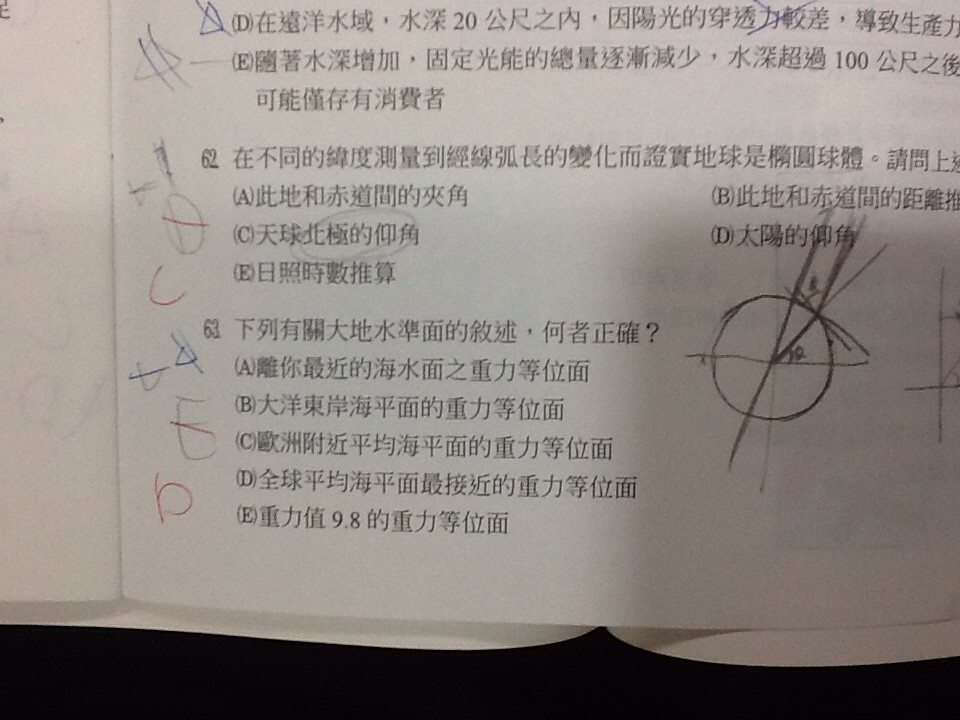 (D)在遠洋水域，水深20公尺之內，因陽光的穿透力較差，導致生產力
(E)隨著水深增加，固定光能的總量逐漸減少，水深超過100公尺之後
可能僅存有消費者
62. 在不同的緯度測量到經線弧長的變化而證實地球是橢圓球體。請問上
(A)此地和赤道間的夾角 (B)此地和赤道間的距離推
(C)天球北極的仰角 (D)太陽的仰角
(E)日照時數推算
C
63. 下列有關大地水準面的敘述，何者正確？
(A)離你最近的海水面之重力等位面
(B)大洋東岸海平面的重力等位面
E
(C)歐洲附近平均海平面的重力等位面
(D)全球平均海平面最接近的重力等位面
D
(E)重力值9.8的重力等位面